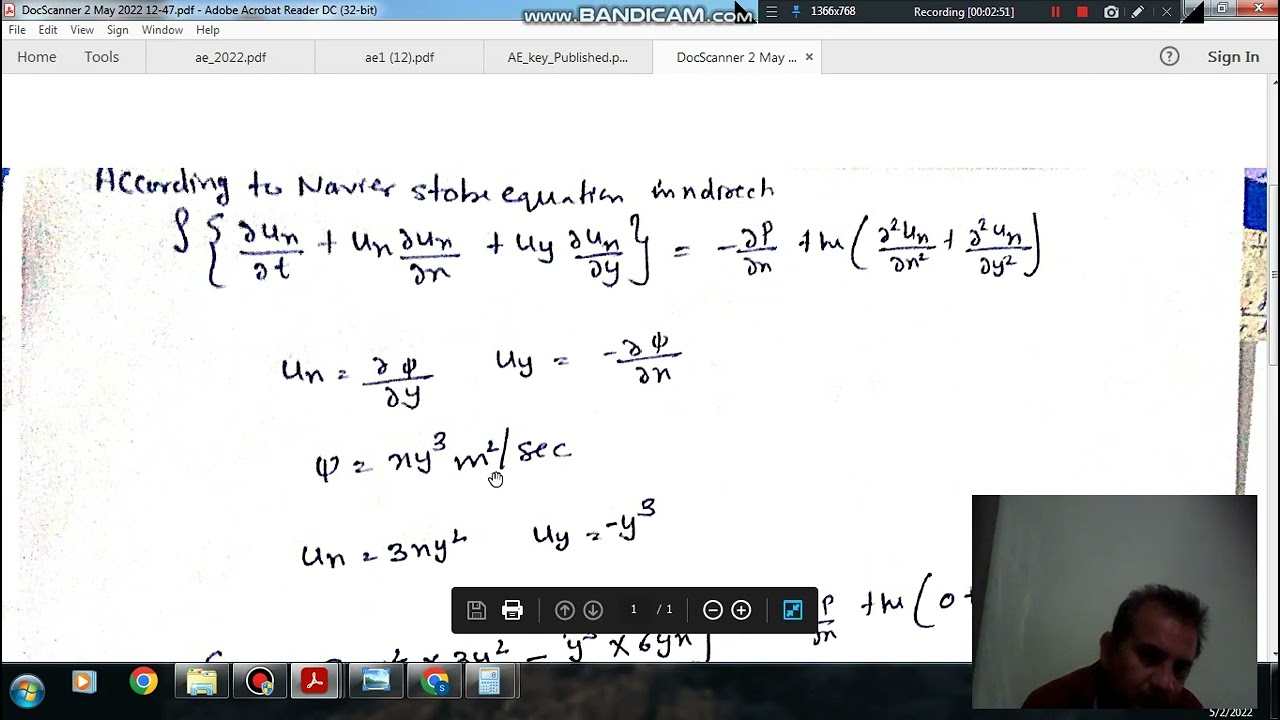 DocScanner 2 May 2022 12-47.pdf - Adobe Acrobat Reader DC (32-bit)
www.BANDICAM.com
1366x768
Recording [00:02:51]
File Edit View Sign Window Help
Home Tools ae_2022.pdf ae1 (12).pdf AE_key_Published.p... DocScanner 2 May ... × Sign In
According to Navier stoke equation in x direct
ρ { ∂ux/∂t + ux ∂ux/∂x + uy ∂ux/∂y } = -∂P/∂x + μ ( ∂²ux/∂x² + ∂²ux/∂y² )
ux = ∂ψ/∂y uy = -∂ψ/∂x
ψ = xy³ m²/sec
ux = 3xy² uy = -y³
P/∂x + μ ( 0 +
y² - y³ × 6yx ]
1 / 1
5/2/2022